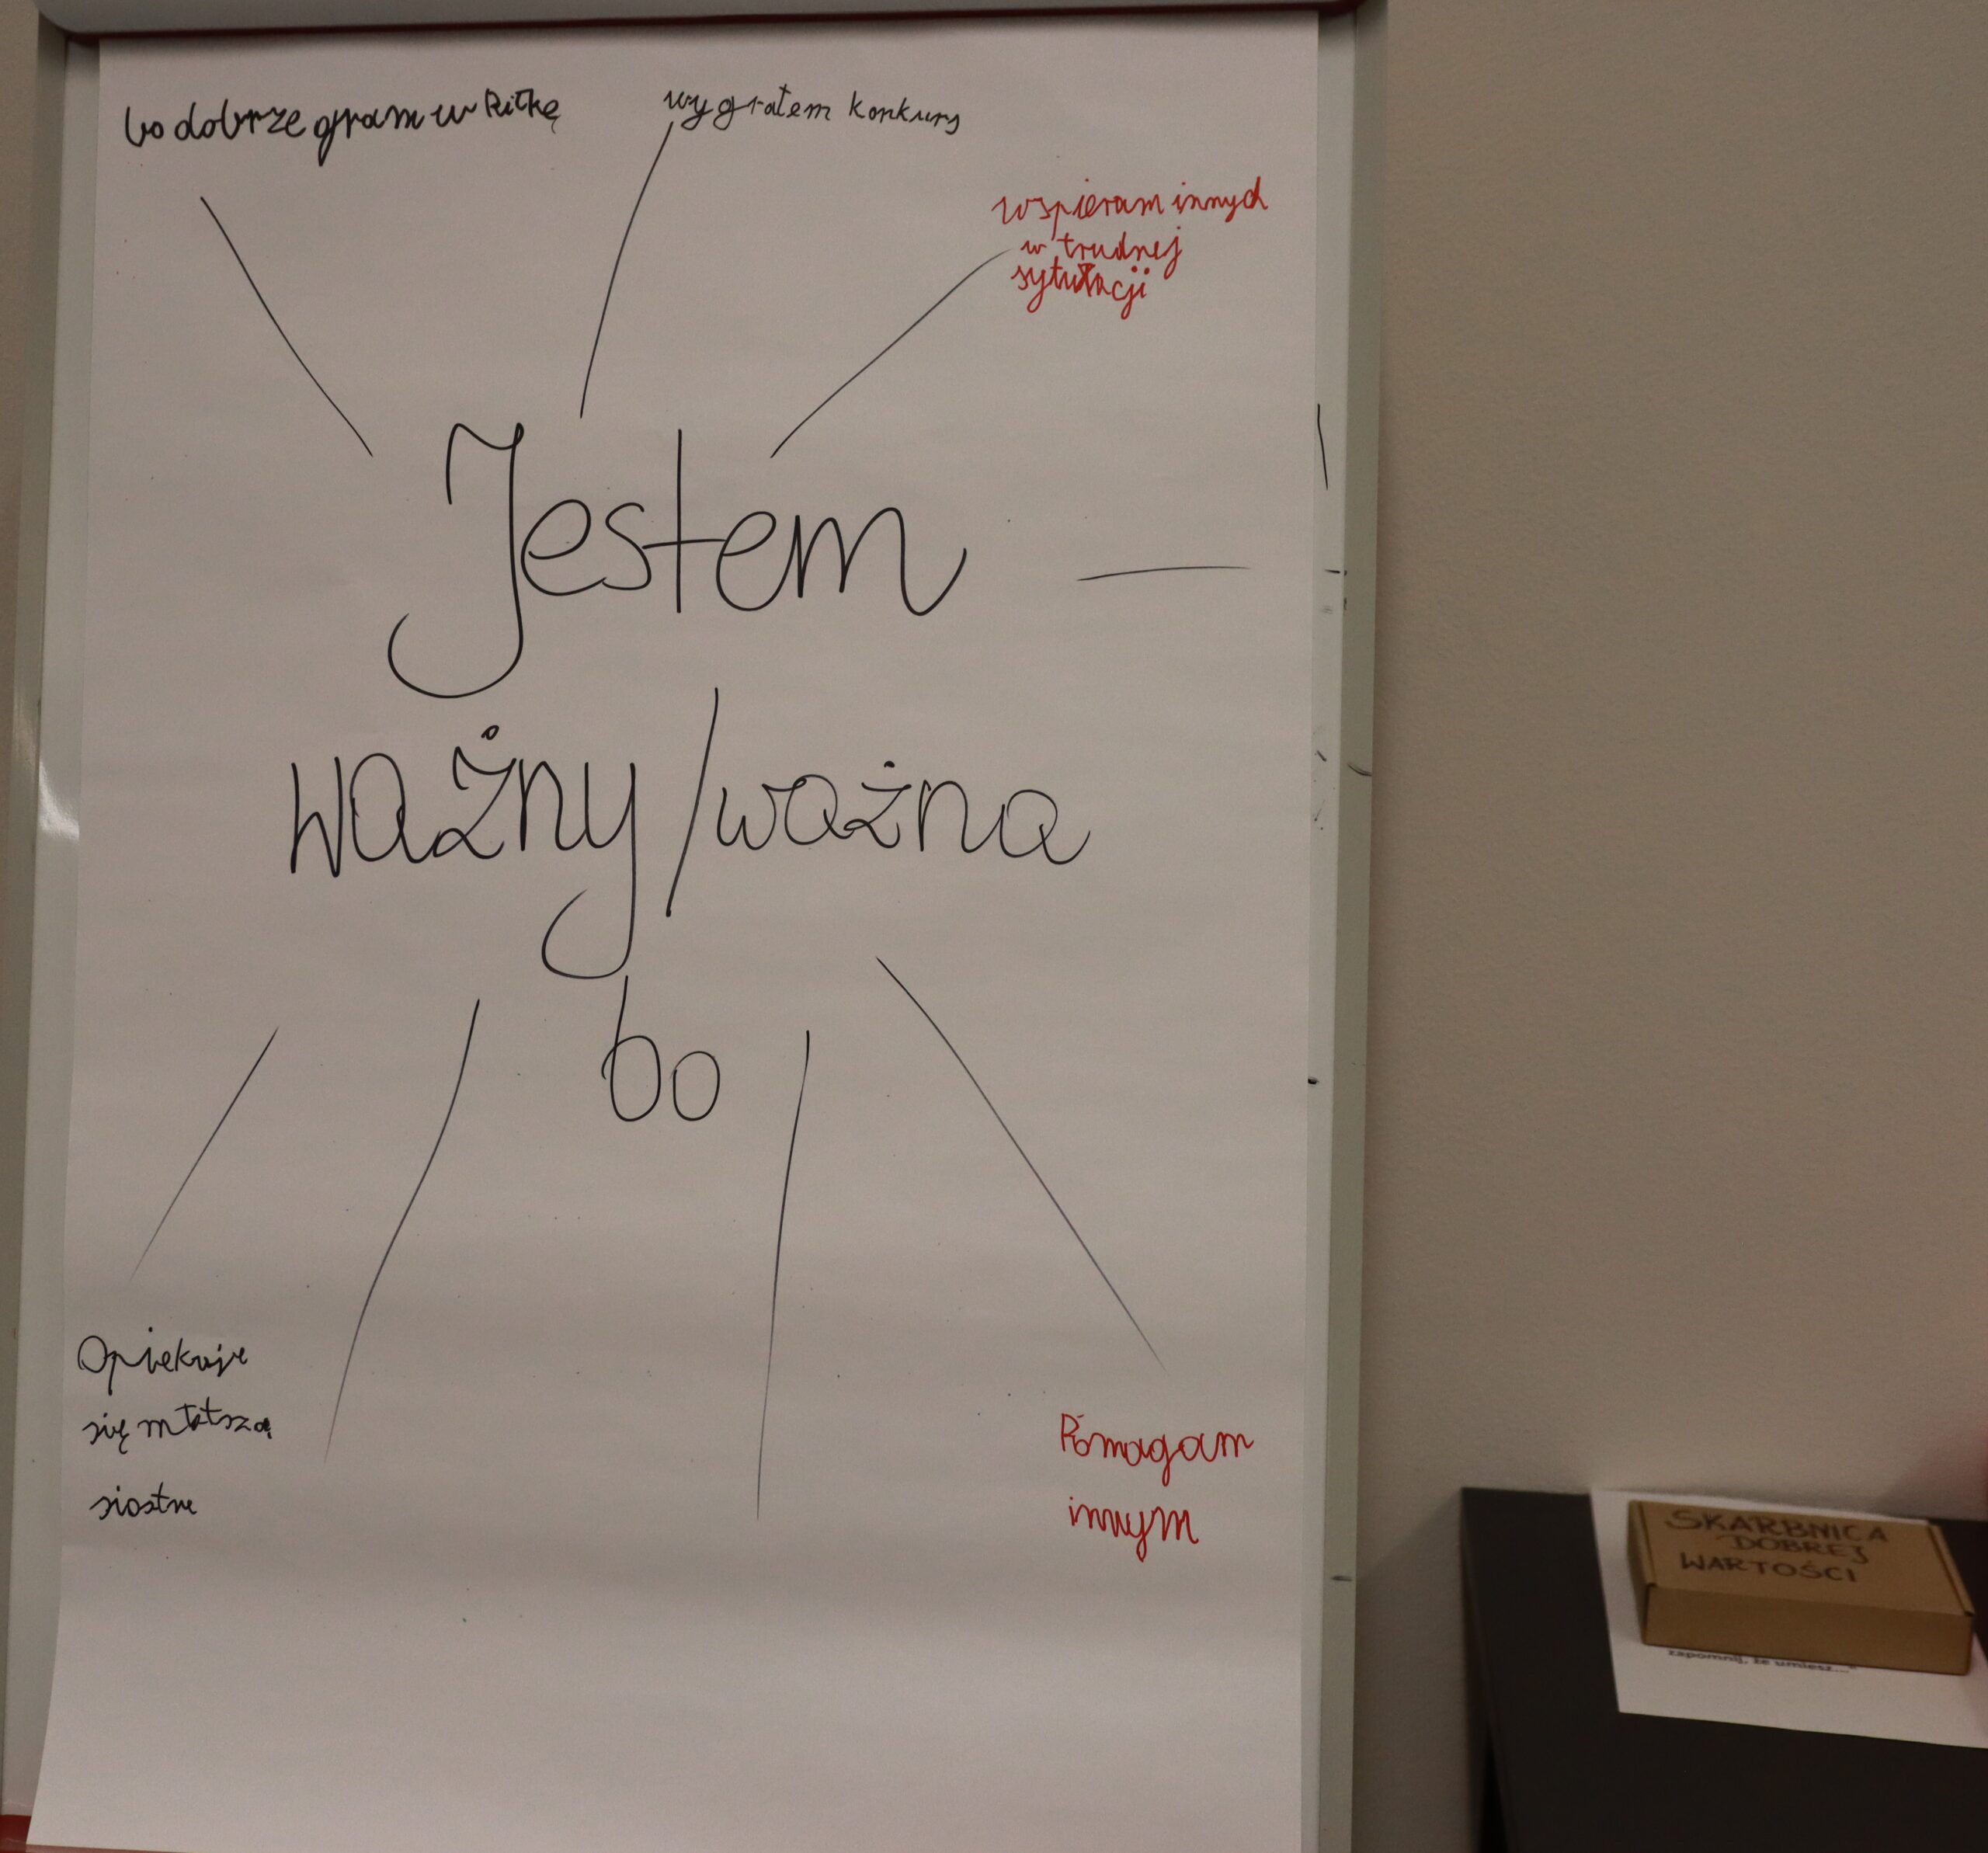 bo dobrze gram w Piłkę
wygrałem konkurs
wspieram innych
w trudnej
sytułacji
Jestem
ważny/ważna
bo
Opiekuje
się młotszą
siostre
Pomagam
innym
SKARBNICA
DOBREJ
WARTOŚCI
zapomnij, że umiesz...."